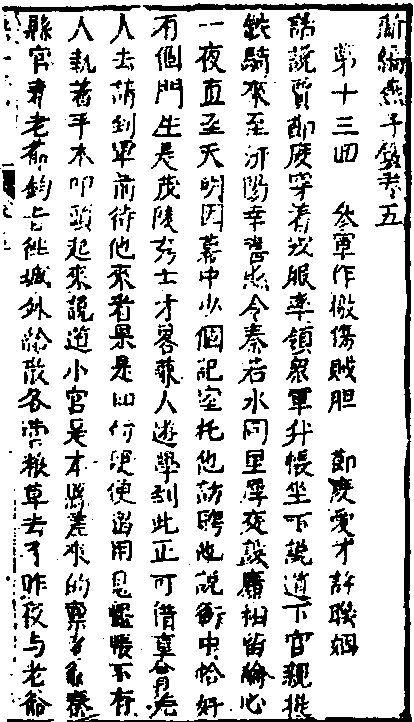 新編燕子箋卷五
第十三回 叅軍作檄傷賊胆 節度愛才許聯姻
話說賈節度穿着戎服率領衆軍升帳坐下說道下官親提
鉄騎來至河陽幸喜縣令秦若水同里厚交設席相留論心
一夜直至天明因幕中少個記室托他訪聘他說衙中恰好
有個門生是茂陵秀士才畧兼人遊學到此正可借重
人去請到軍前待他來看果是如何便
人執着手本叩頭起來說道小官是本縣差來的禀老爺秦
縣官奉老爺鈞旨徃城外給散各營粮草去了昨夜与老爺